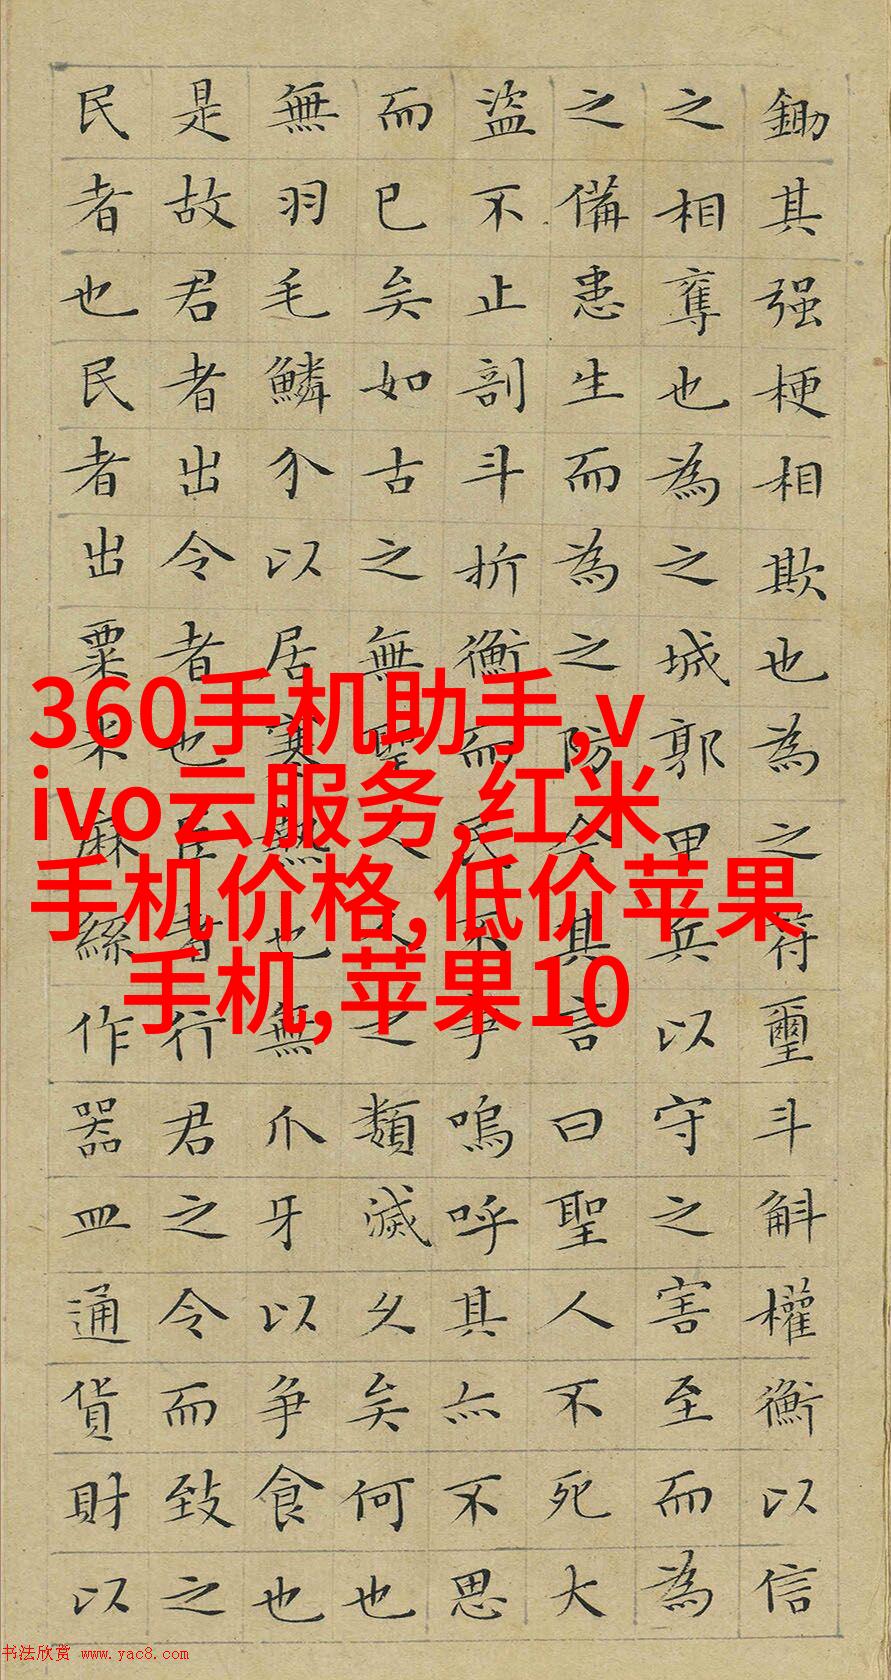 鋤其强梗相欺也為之符璽斗斛權衡以信
之相奪也為之城郭甲兵以守之害至而為
之備患生而為之防今其言曰聖人不死大
盜不止剖斗折衡而民不爭嗚呼其亦不思
而已矣如古之無聖人人之類滅久矣何也
無羽毛鱗介以居寒熱也無爪牙以爭食也
是故君者出令者也臣者行君之令而致之
民者也民者出粟米麻絲作器皿通貨財以
360手机助手,v
ivo云服务,红米
手机价格,低价苹果
手机,苹果10
书法欣赏 www.yac8.com